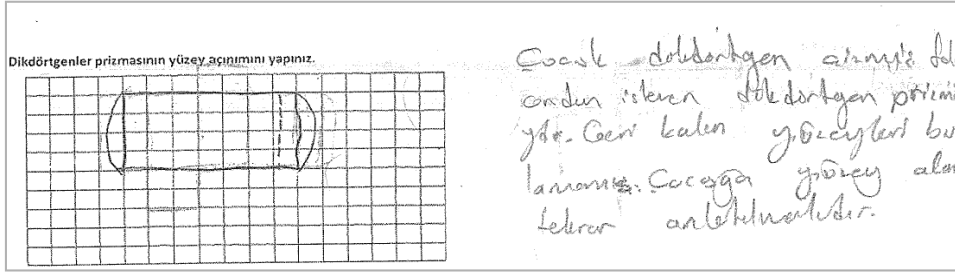 Dikdörtgenler prizmasının yüzey açınımını yapınız.
Çocuk dikdörtgen çizmiş
ondan istenen dikdörtgen
Geri kalan yüzeyleri
Çocuğa yüzey
tekrar anlatılmalıdır.